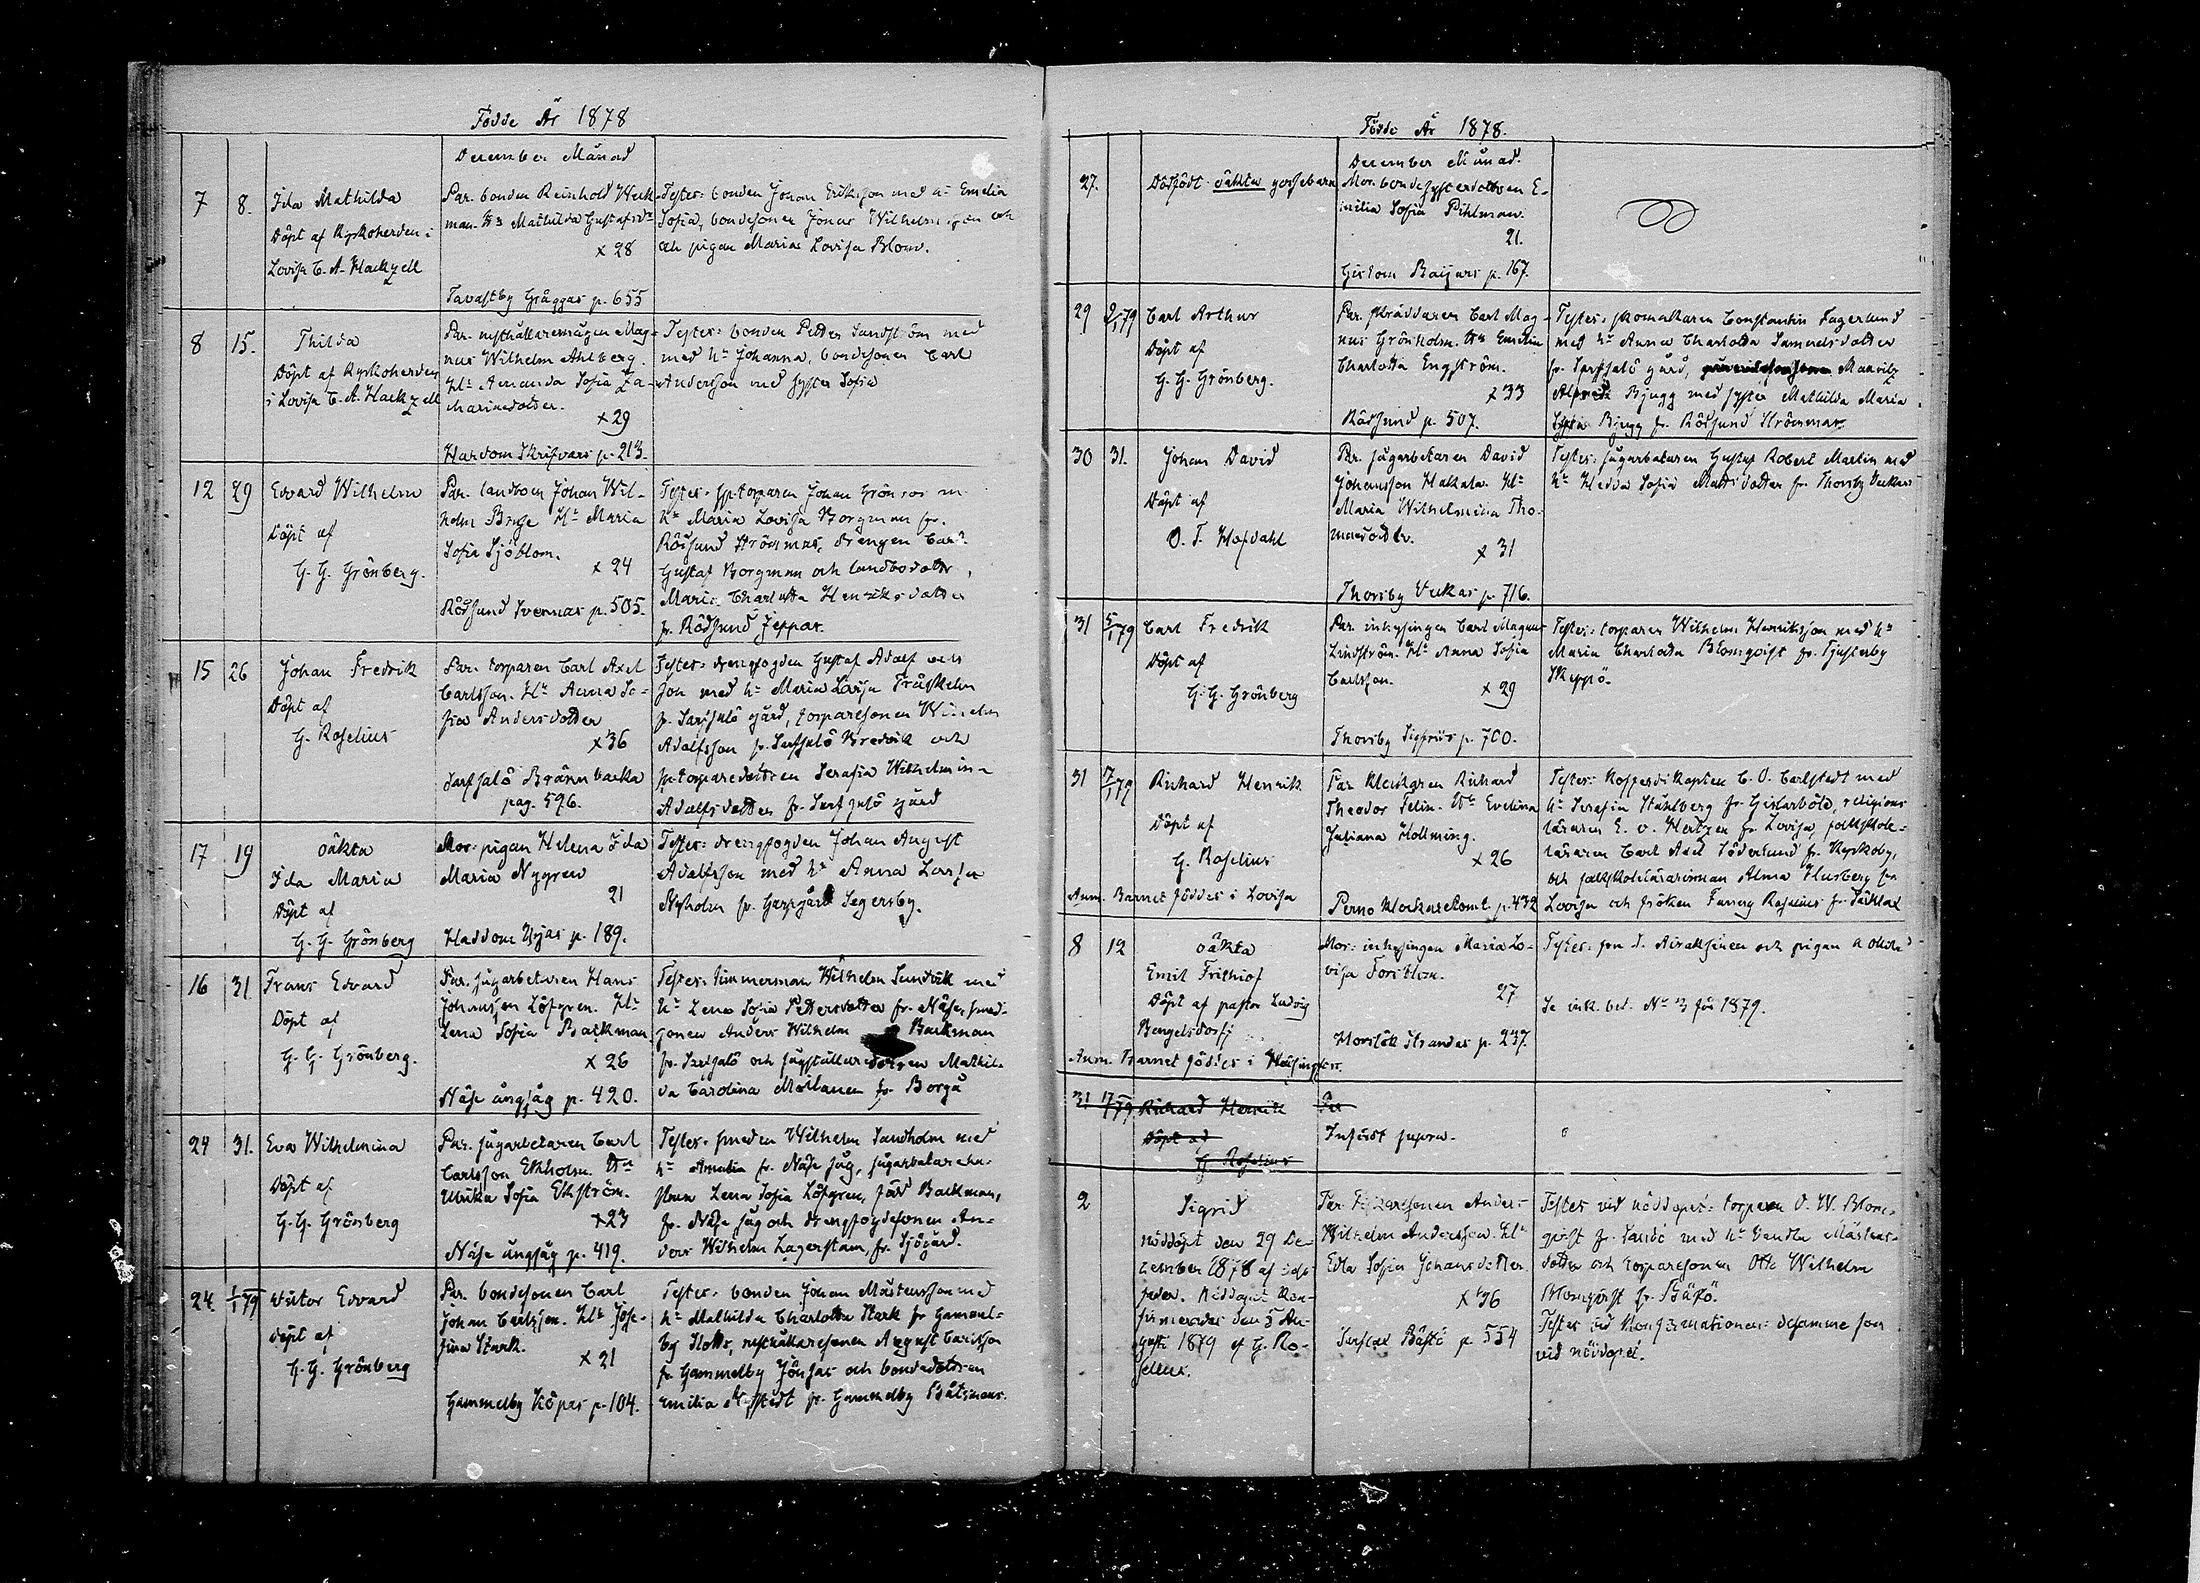 Födde År 1878
December Månad
7 8. Ida Mathilda
Döpt af Kyrkoherden i
Lovisa C. A. Hackzell
Par. bonden Reinhold Weck-
man. Hu Mathilda Gustafsdr
x 28
Tavastby Gråggas p. 655
Testes: bonden Johan Eriksson med hu Emelia
Sofia, bondesonen Jonas Wilhelmsson och
och pigan Maria Lovisa Blom.
8 15. Thilda
Döpt af Kyrkoherden
i Lovisa C. A. Hackzell
Par. rusthållaremågen Mag-
nus Wilhelm Ahlberg.
Hu Amanda Sofia Za-
chariedotter.
x 29
Hardom Skrifvars p. 213.
Testes: bonden Petter Sundström med
med hu Johanna, bondesonen Carl
Andersson med syster Sofia
12 29 Edvard Wilhelm
Döpt af
G. G. Grönberg.
Par. landboen Johan Wil-
helm Bruse Hu Maria
Sofia Sjöblom.
x 24
Rödsund Svennas p. 505.
Testes: sp. torparen Johan Grönroos m
hu Maria Lovisa Borgman fr.
Rödsund Strömmas, drengen Carl
Gustaf Borgman och landbodotter,
Maria Charlotta Henriksdotter
fr. Rödsund Jeppas.
15 26 Johan Fredrik
Döpt af
G. Roselius
Par. torparen Carl Axel
Carlsson. Hu Anna So-
fia Andersdotter
x 36
Sarfsalö Brännbacka
pag. 596.
Testes: drengfogden Gustaf Adolf
son med hu Maria Lovisa Fräskelin
fr. Sarfsalö gård, torparesonen Wilhelm
Adolfsson fr. Sarfsalö Bredvik och
sp. torparedottren Serafia Wilhelmina
Adolfsdotter fr. Sarfsalö gård
17 19 oäkta
Ida Maria
Döpt af
G. G. Grönberg
Mor: pigan Helena Ida
Maria Nygren
21
Haddom Uijas p. 189.
Testes: drengfogden Johan August
Adolfsson med hu Anna Lovisa
Nyholm fr. Garpgård Segersby.
16 31. Frans Edvard
Döpt af
G. G. Grönberg.
Par. sågarbetaren Hans
Johansson Löfgren. Hu
Lena Sofia Backman
x 26
Näse ångsåg p. 420.
Testes: timmerman Wilhelm Sundvik med
hu Lena Sofia Pettersdotter fr. Näse, smed-
sonen Anders Wilhelm Backman
fr. Sarfsalö och sågställaredottren Mathil-
da Carolina Moilanen fr. Borgå
24 31. Eva Wilhelmina
Döpt af
G. G. Grönberg
Par. sågarbetaren Carl
Carlsson Ekholm. Hu
Ulrika Sofia Ekström.
x 23
Näse ångsåg p. 419.
Testes: smeden Wilhelm Sandholm med
hu Amalia fr. Näse såg, sågarbetarehu-
strun Lena Sofia Löfgren, född Backman,
fr. Näse såg och drengfogdesonen An-
ders Wilhelm Lagerstam, fr. Sjögård.
24. 1/1 79 Victor Edvard
Döpt af
G. G. Grönberg
Par. bondesonen Carl
Johan Carlsson. Hu Jose-
fina Stark.
x 21
Gammelby Köpas p. 104.
Testes: bonden Johan Mårtensson med
hu Mathilda Charlotta Stark fr Gammel-
by Slotts, rusthållaresonen August Carlsson
fr. Gammelby Jönsas och bondedottren
Emilia Nystedt fr. Gammelby Båtsmans.
Födde År 1878.
December Månad.
27. Dödfödt oäkta gossebarn
Mor. bondesysterdottren E-
milia Sofia Pihlman.
21.
Gislom Baijars p. 167.
29 2/1 79 Carl Arthur
Döpt af
G. G. Grönberg.
Par. skräddaren Carl Mag-
nus Grönholm. Hu Emelia
Charlotta Engström.
x 33
Rödsund p. 507.
Testes: skomakaren Constantin Fagerlund
med hu Anna Charlotta Samuelsdotter
fr. Sarfsalö gård, Mauritz
Alfred Bjugg med syster Mathilda Maria
Bjugg fr. Rödsund Strömmas.
30 31. Johan David
Döpt af
O. T. Hofdahl
Par. sågarbetaren David
Johansson Hakala. Hu
Maria Wilhelmina Tho-
masdotter.
x 31
Thorsby Veckas p. 716.
Testes: sågarbetaren Gustaf Robert Martin med
hu Hedda Sofia Mattsdotter fr. Thorsby Veckas
31 5/1 79 Carl Fredrik
Döpt af
G. G. Grönberg
Par. inhysingen Carl Magnus
Lindström. Hu Anna Sofia
Carlsson.
x 29
Thorsby Sigfrids p. 700.
Testes: torparen Wilhelm Henriksson med hu
Maria Charlotta Blomqvist fr. Tjusterby
Skeppö.
31 17/1 79 Richard Henrik
Döpt af
G. Roselius
Anm. Barnet föddes i Lovisa
Par Klockaren Richard
Theodor Felin. Hu Evelina
Juliana Hollming.
x 26
Perno Klockarekomt. p. 432
Testes: Kofferdikapten C. O. Carlstedt med
hu Serafia Ståhlberg fr. Gislarböle, religions
läraren E. v. Hertzen fr. Lovisa, folkskole-
läraren Carl Axel Söderlund fr. Kyrkoby,
och folkskolelärarinnan Alma Husberg fr
Lovisa och fröken Fanny Roselius fr. Särklax
8 12 oäkta
Emil Frithiof
Döpt af pastor Ludvig
Bengelsdorff
Anm. Barnet föddes i Helsingfors.
Mor: inhysingen Maria Lo-
visa Forsblom.
27
Horslök Strandas p. 237.
Se ink. bet. No 3 för 1879.
31 17/1 79 Richard Henrik
Döpt af
G. Roselius
Par
Infördt supra.
2 Sigrid
nöddöpt den 29 De-
cember 1878 af
Nöddopet kon-
firmerades den 5 Au-
gusti 1879 af G. Ro-
selius.
Par. Fiskaresonen Anders
Wilhelm Andersson. Hu
Edla Sofia Johansdotter.
x 36
Sarfsalö Båstö p. 554
Testes vid nöddopet: torparen O. W. Blom-
qvist fr. Sandö med hu Vendla Mårtens-
dotter och torparesonen Otto Wilhelm
Blomqvist fr. Båtö.
Testes vid Konfirmationen: desamme som
vid nöddopet.